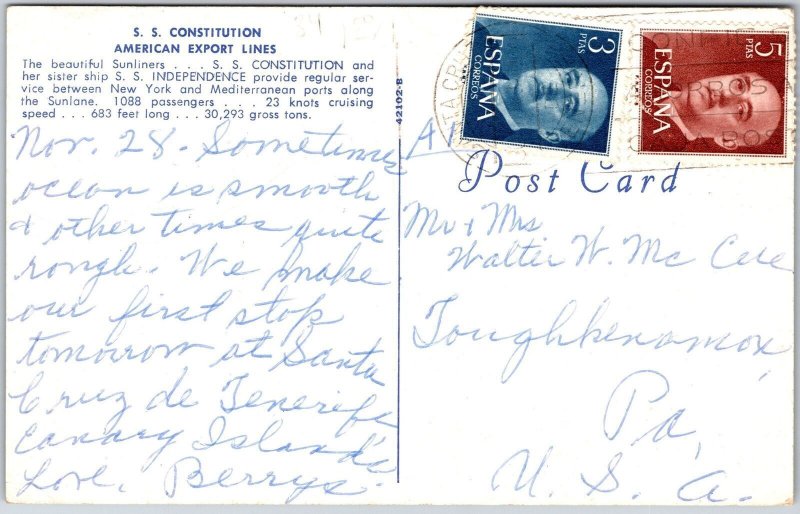 S. S. CONSTITUTION
AMERICAN EXPORT LINES
The beautiful Sunliners . . . S. S. CONSTITUTION and
her sister ship S. S. INDEPENDENCE provide regular ser-
vice between New York and Mediterranean ports along
the Sunlane. 1088 passengers . . . 23 knots cruising
speed . . . 683 feet long . . . 30,293 gross tons.
Nov. 28 - Sometimes
ocean is smooth
& other times quite
rough. We make
our first stop
tomorrow at Santa
Cruz de Tenerife
Canary Islands
Love, Berrys.
42102-B
3
PTAS
ESPAÑA
CORREOS
5
PTAS
ESPAÑA
CORREOS
Post Card
Mr & Mrs
Walter W. Mc
Toughkenamon,
Pa,
U. S. A.